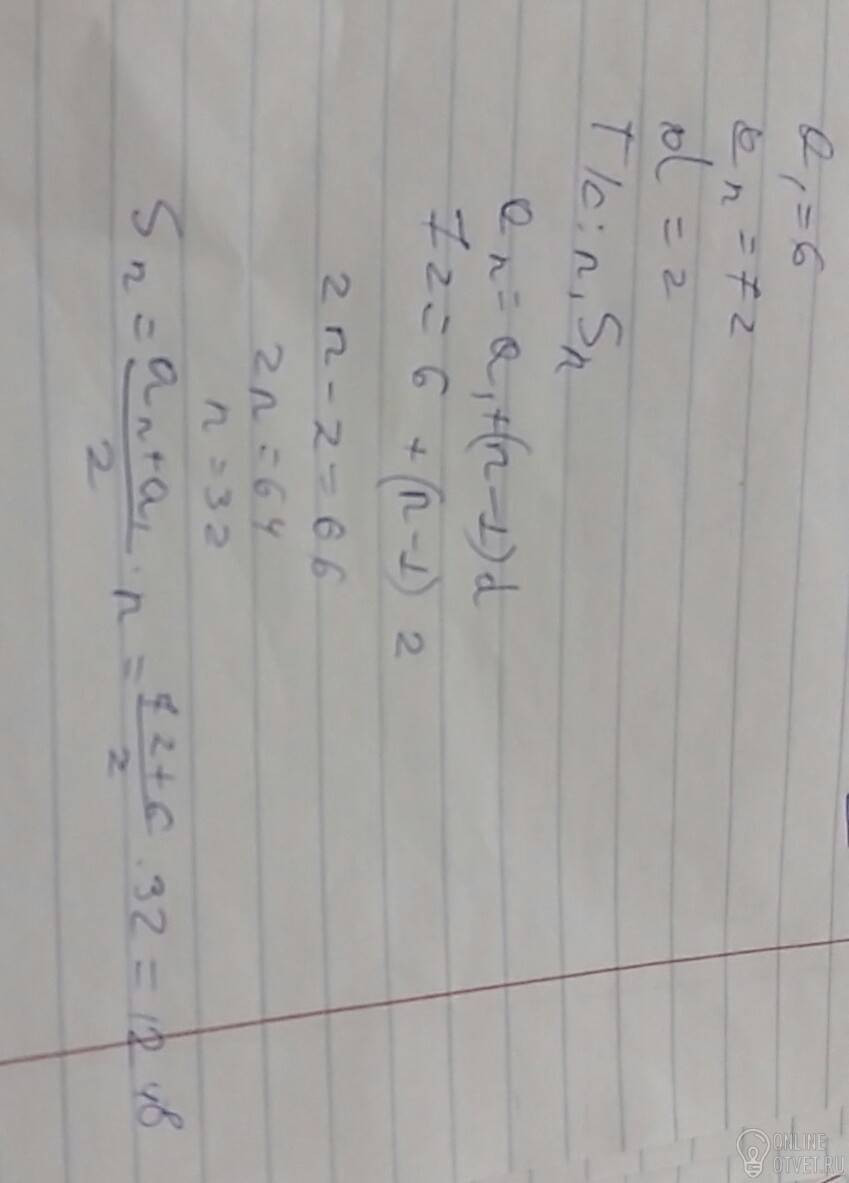 a₁ = 6
aₙ = 72
d = 2
T/c: n, Sₙ
aₙ = a₁ + (n - 1)d
72 = 6 + (n - 1) 2
2n - 2 = 66
2n = 64
n = 32
Sₙ = (aₙ + a₁)/2 · n = (72 + 6)/2 · 32 = 1248
ONLINE
OTVET.RU